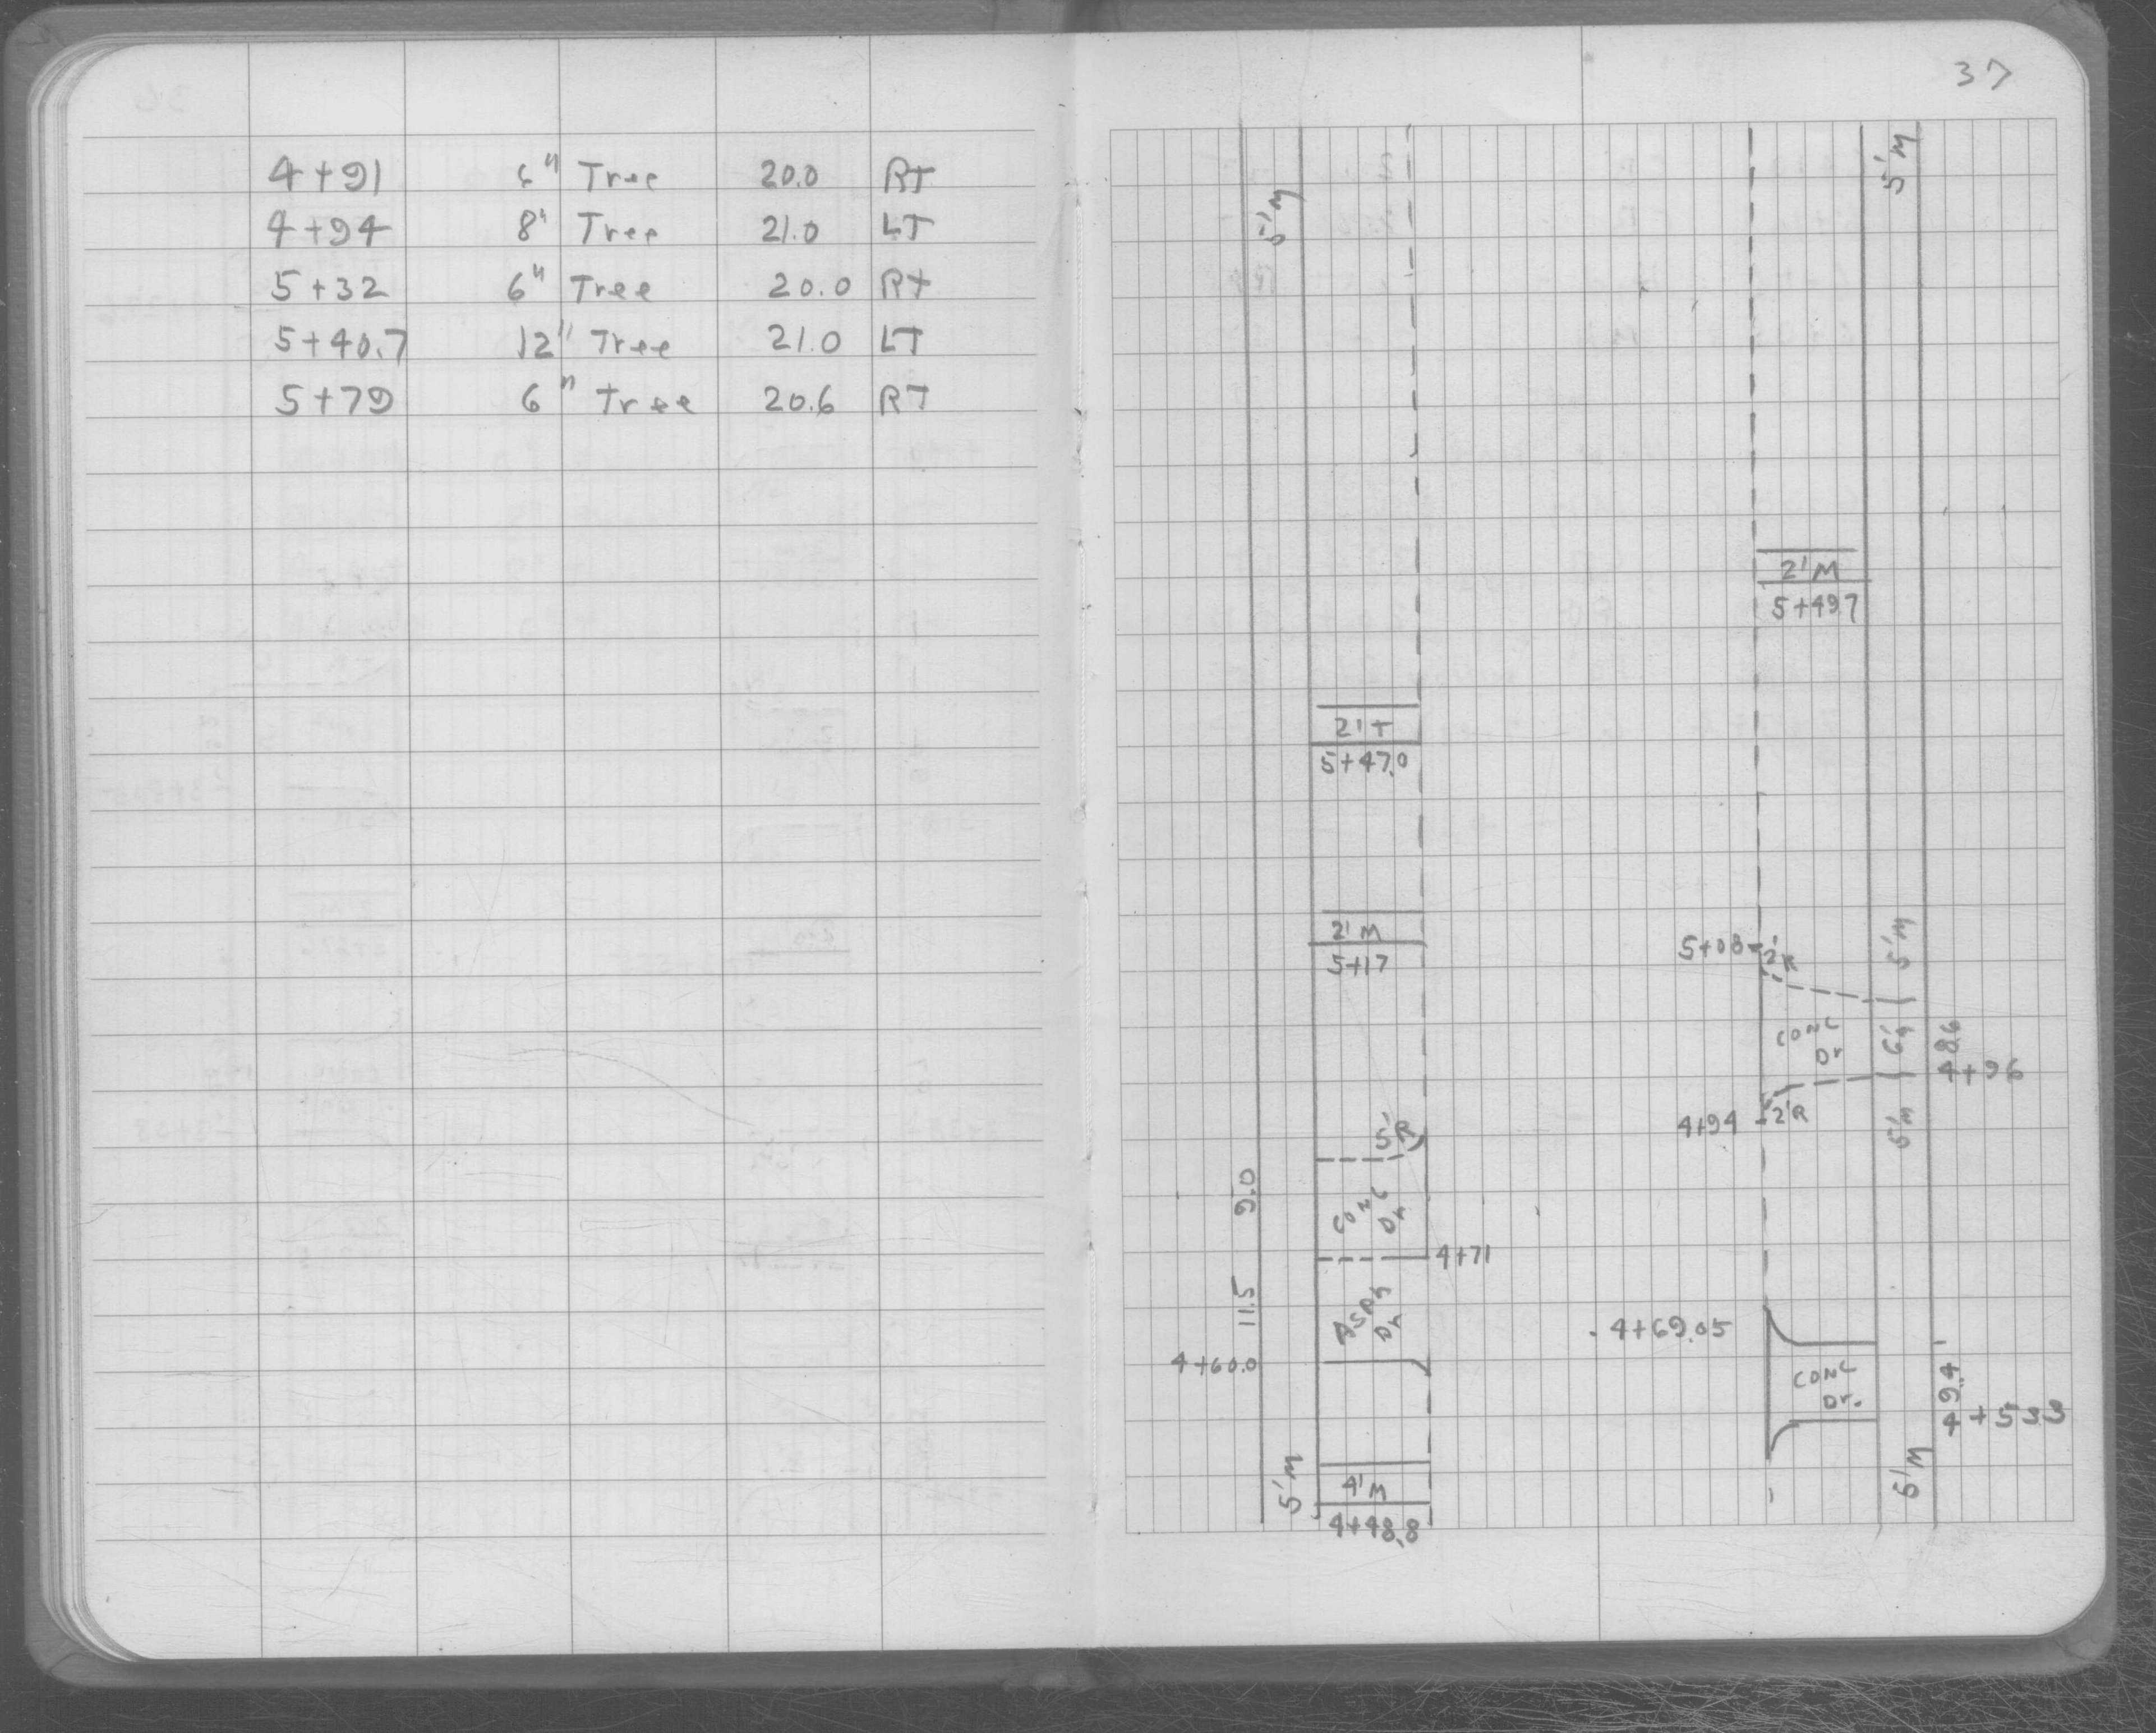 4+91 6" Tree 20.0 RT
4+94 8" Tree 21.0 LT
5+32 6" Tree 20.0 Rt
5+40.7 12" Tree 21.0 LT
5+79 6" Tree 20.6 RT
37
5'M
5'M
2'M
5+49.7
2'T
5+47.0
2'M
5+17
5+08
2'R
5'M
CONC
Dr
48.6
4+96
4+94
2'R
5'M
5'R
9.0
CONC
Dr
4+71
11.5
Dr
4+69.05
4+60.0
CONC
Dr.
49.4'
4+53.3
5'M
4'M
5'M
4+48.8